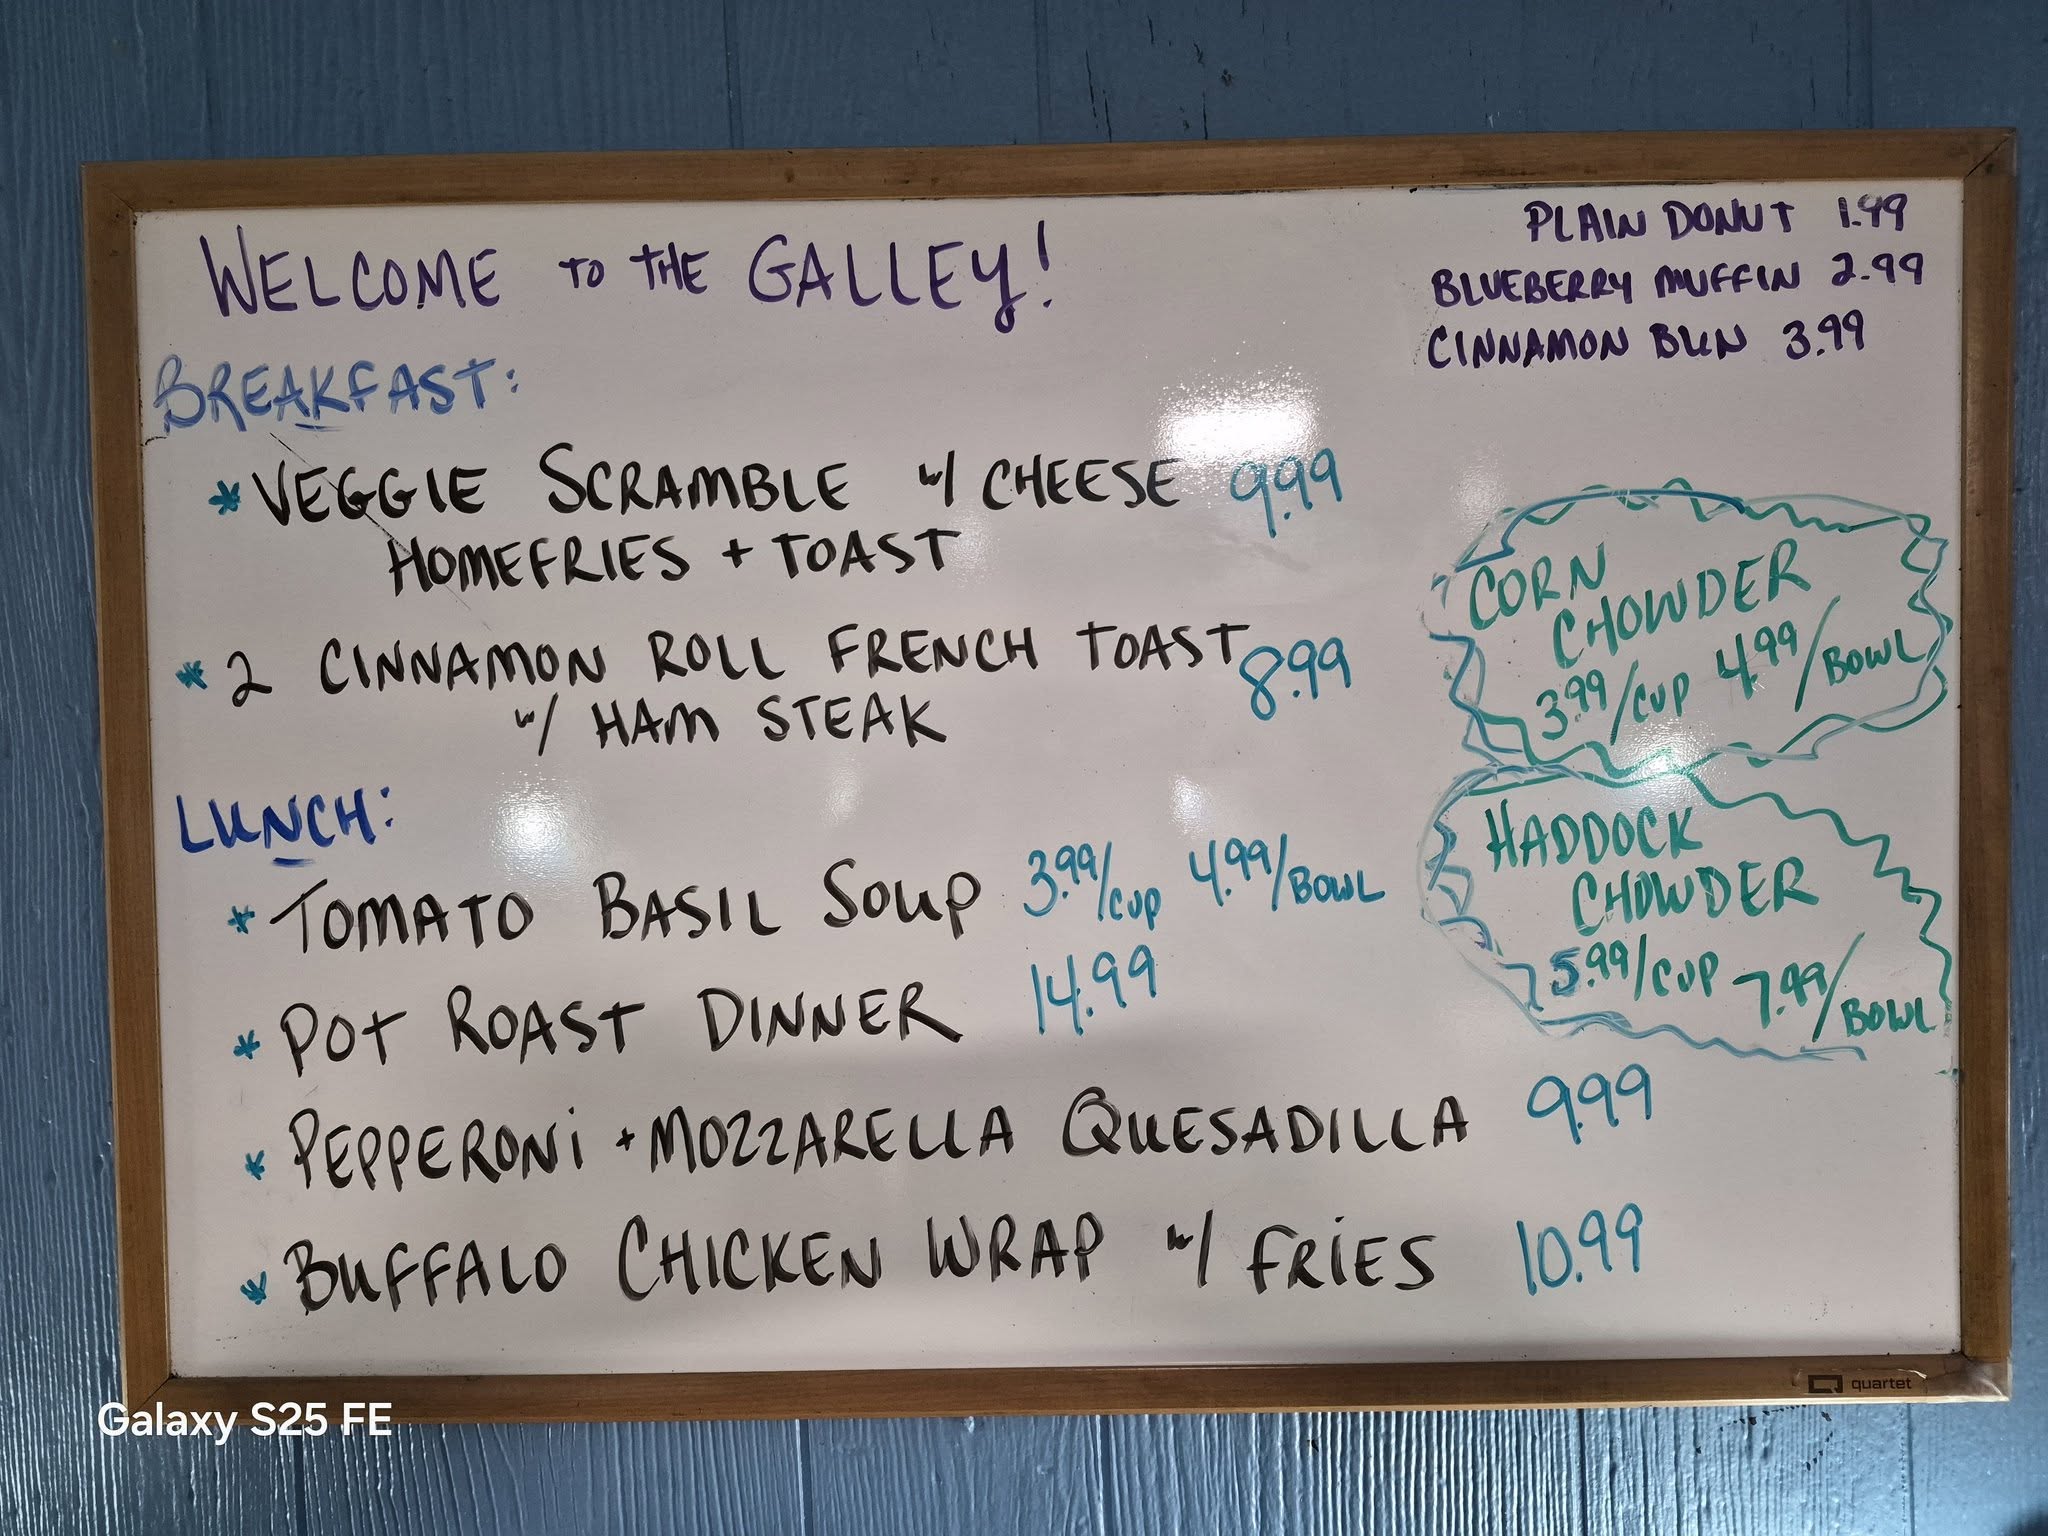 WELCOME TO THE GALLEY!
PLAIN DONUT 1.99
BLUEBERRY MUFFIN 2.99
CINNAMON BUN 3.99
BREAKFAST:
* VEGGIE SCRAMBLE w/ CHEESE 9.99
HOMEFRIES + TOAST
* 2 CINNAMON ROLL FRENCH TOAST 8.99
w/ HAM STEAK
CORN
CHOWDER
3.99/CUP 4.99/BOWL
LUNCH:
* TOMATO BASIL SOUP 3.99/CUP 4.99/BOWL
* POT ROAST DINNER 14.99
HADDOCK
CHOWDER
5.99/CUP 7.99/BOWL
* PEPPERONi + MOZZARELLA QUESADILLA 9.99
* BUFFALO CHICKEN WRAP w/ FRiES 10.99
quartet
Galaxy S25 FE